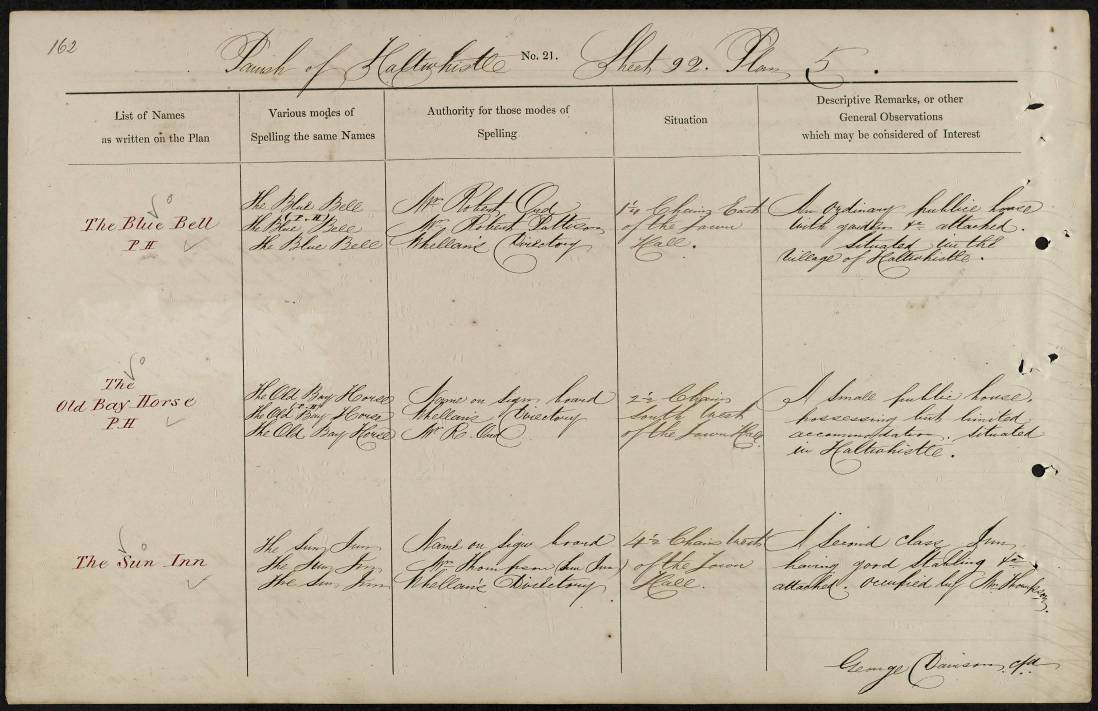 162
Parish of Haltwhistle No. 21. Sheet 92. Plan 5.
List of Names
as written on the Plan
Various modes of
Spelling the same Names
Authority for those modes of
Spelling
Situation
Descriptive Remarks, or other
General Observations
which may be considered of Interest
The Blue Bell
P H
The Blue Bell
(P.H)
The Blue Bell
The Blue Bell
Mr. Robert
Mr. Robert Pattison
Whellan's Directory
Chains East
of the Town
Hall.
An ordinary public house
with garden &c attached.
Situated in the
village of Haltwhistle.
The
Old Bay Horse
P H
The Old Bay Horse
(P.H)
The Old Bay Horse
The Old Bay Horse
Name on sign board
Whellan's Directory
Mr. R.
2½ Chains
South West
of the Town Hall
A small public house,
possessing but limited
accommodation. situated
in Haltwhistle.
The Sun Inn
The Sun Inn
The Sun Inn
The Sun Inn
Name on sign board
Wm. Thompson (Sun Inn)
Whellan's Directory
4½ Chains West
of the Town
Hall.
A Second class Inn
having good Stabling &c
attached. occupied by Wm. Thompson.
George Davison